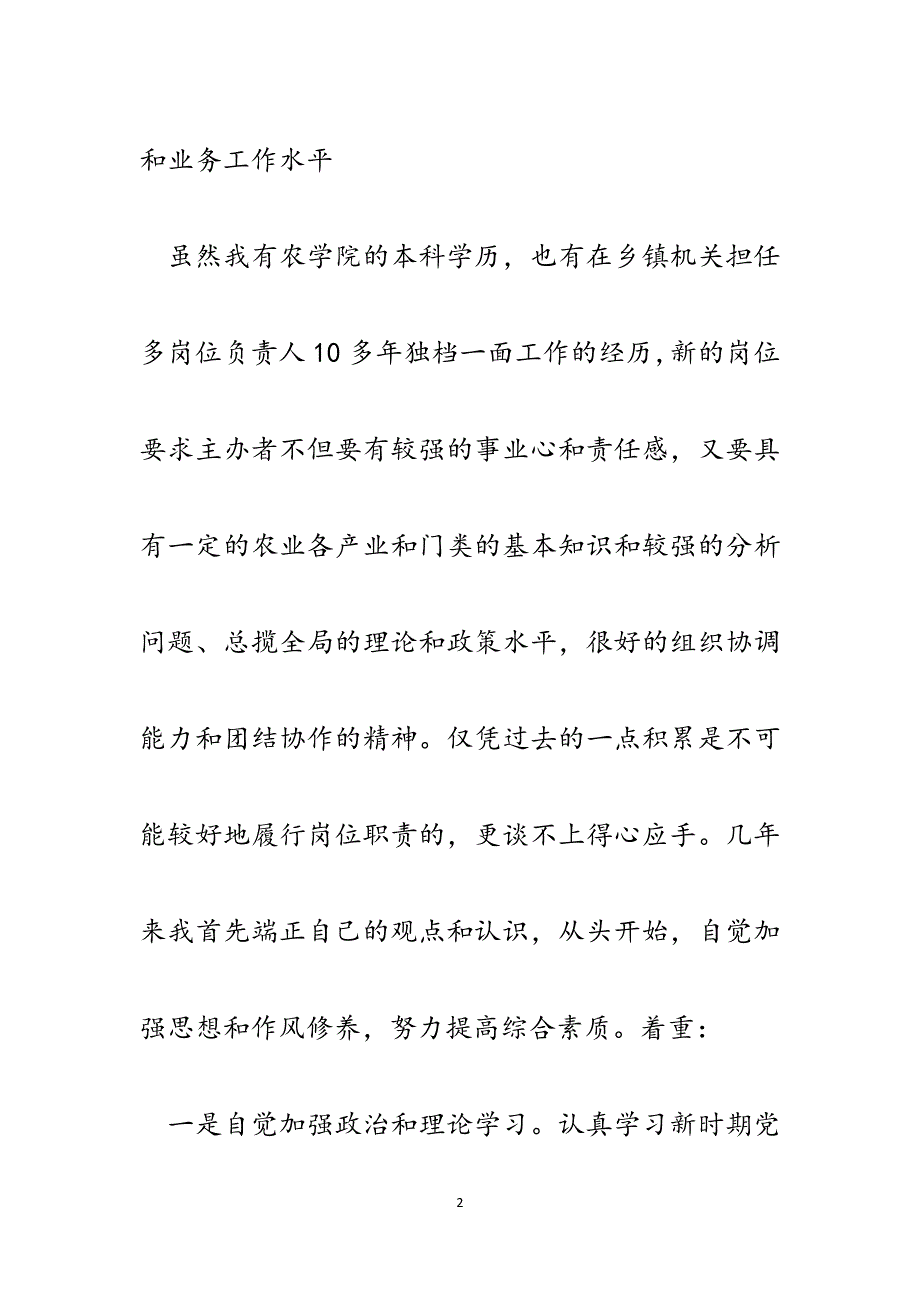 和业务工作水平
虽然我有农学院的本科学历，也有在乡镇机关担任
多岗位负责人10多年独档一面工作的经历,新的岗位
要求主办者不但要有较强的事业心和责任感，又要具
有一定的农业各产业和门类的基本知识和较强的分析
问题、总揽全局的理论和政策水平，很好的组织协调
能力和团结协作的精神。仅凭过去的一点积累是不可
能较好地履行岗位职责的，更谈不上得心应手。几年
来我首先端正自己的观点和认识，从头开始，自觉加
强思想和作风修养，努力提高综合素质。着重：
一是自觉加强政治和理论学习。认真学习新时期党
2